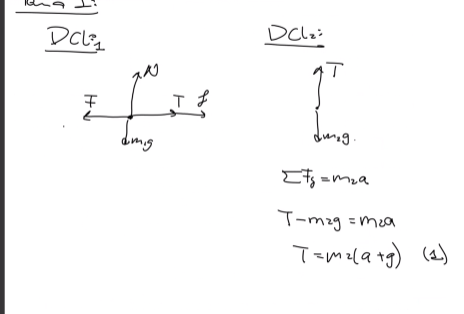 DCL:₁
N
F
T f
m₁g
DCL₂:
T
m₂g.
ΣFy = m₂a
T - m₂g = m₂a
T = m₂(a + g) (1)